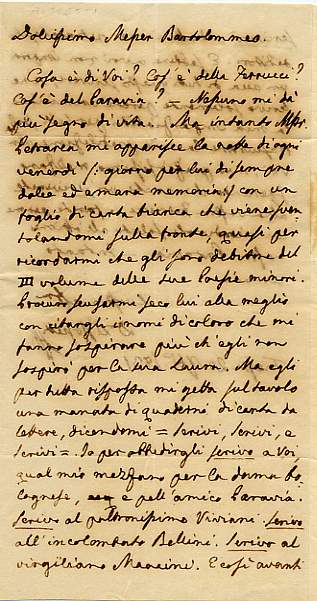 Dolcissimo Messer Bartolommeo.
Cosa è di Voi? Cos' è della Ferrucci?
Cos' è del Paravia? = Nessuno mi dà
più segno di vita. Ma intanto Messr
Petrarca mi apparisce la notte di ogni
venerdì /: giorno per lui di sempre
dolce ed amara memoria :/ con un
foglio di carta bianca che viene sven
tolandomi sulla fronte, quasi per
ricordarmi che gli sono debitore del
III volume delle sue Poesie minori.
Procuro scusarmi seco lui alla meglio
con citargli i nomi di coloro che mi
fanno sospirare più ch' egli non
sospirò per la sua Laura. Ma egli
per tutta risposta mi getta sul tavolo
una manata di quaderni di carta da
lettere, dicendomi = scrivi, scrivi, e
scrivi =. Io per obbedirgli scrivo a Voi,
qual mio mezzano per la donna bo
lognese, e pell' amico Paravia.
Scrivo al poltronissimo Viviani. Scrivo
all' incolombato Bellini. Scrivo al
virgiliano Mancini. E così avanti